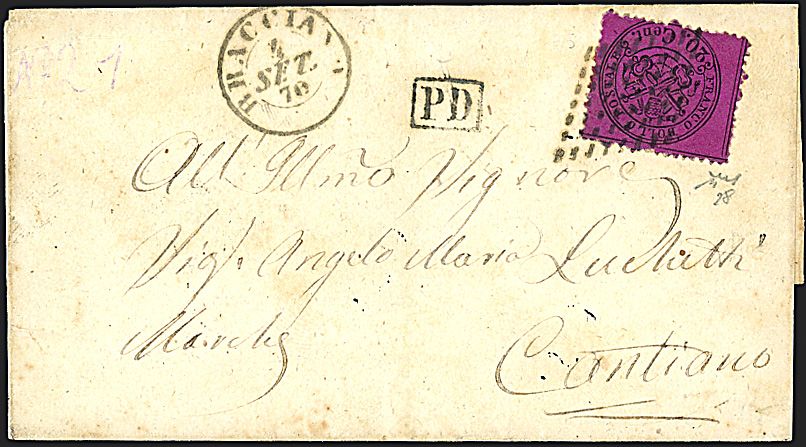 BRACCIANO
4
SET.
70
PD
FRANCO BOLLO POSTALE
20 Cent.
N° 21
All' Illmo Signore
Sig. Angelo Maria
Marche
Cantiano
28